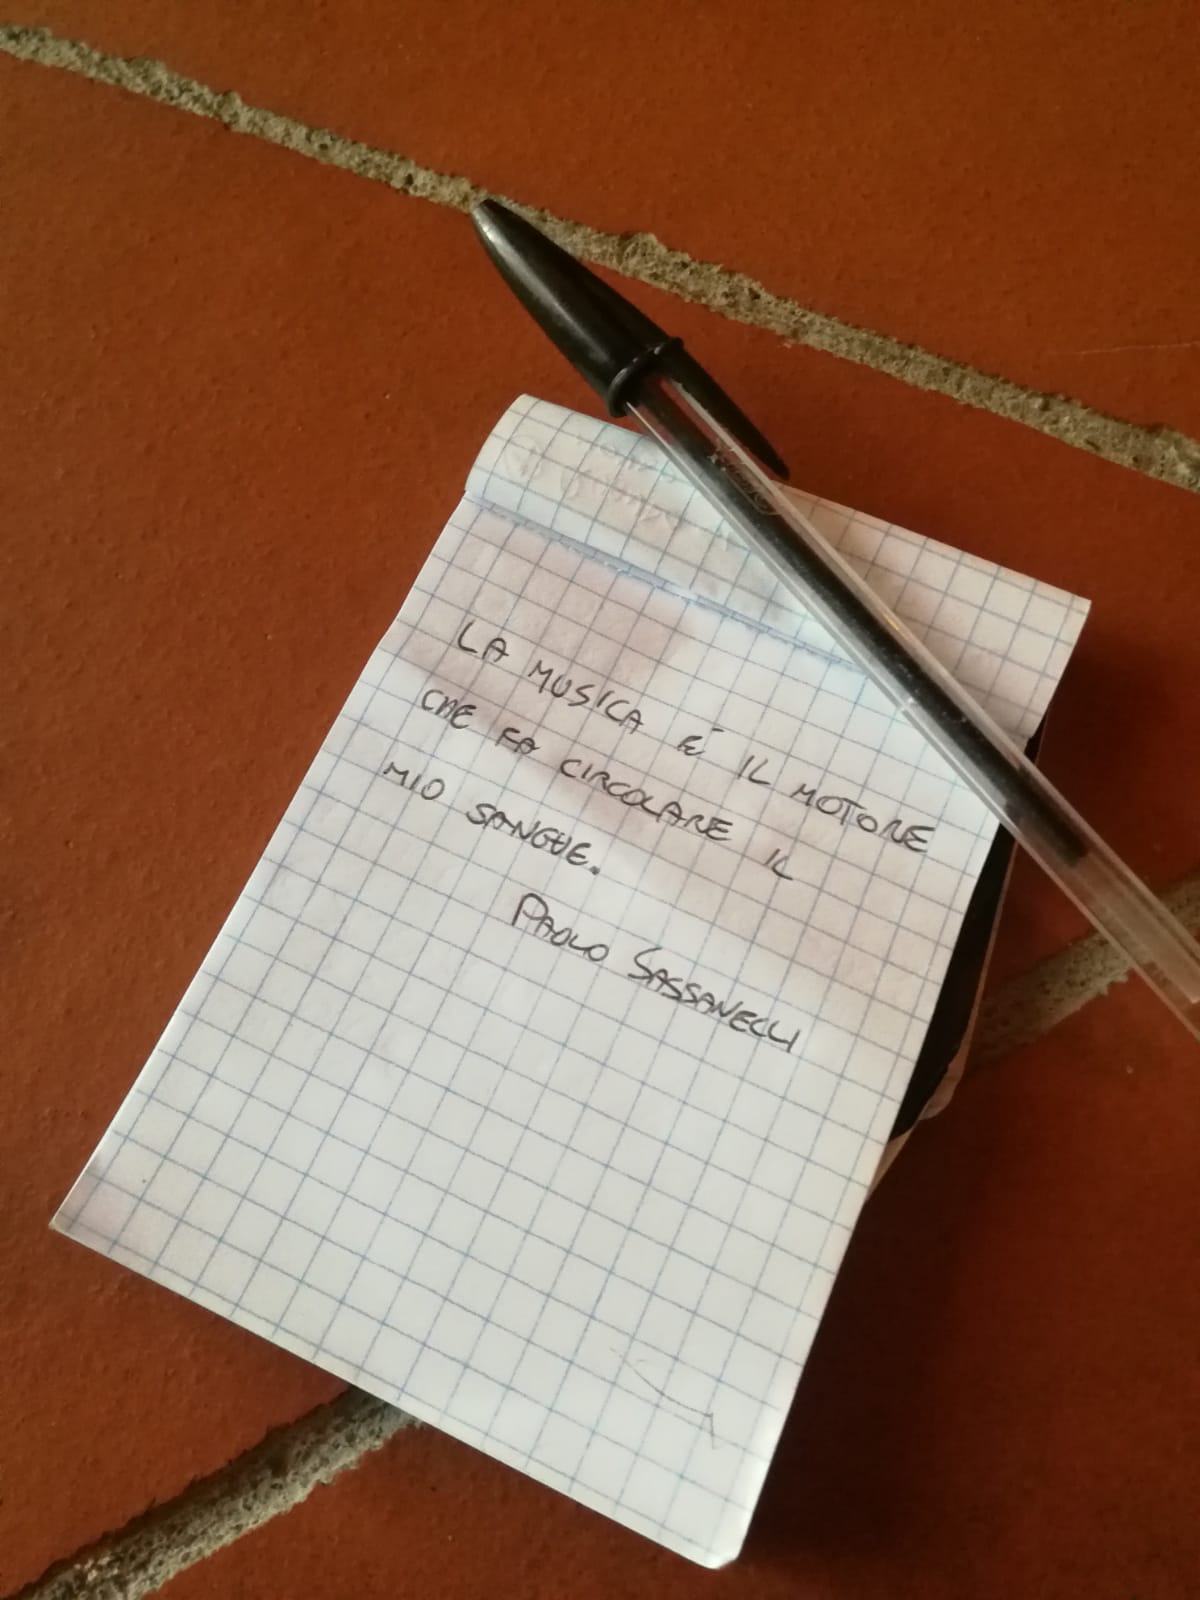 LA MUSICA È IL MOTORE
CHE FA CIRCOLARE IL
MIO SANGUE.
PAOLO SASSANELLI